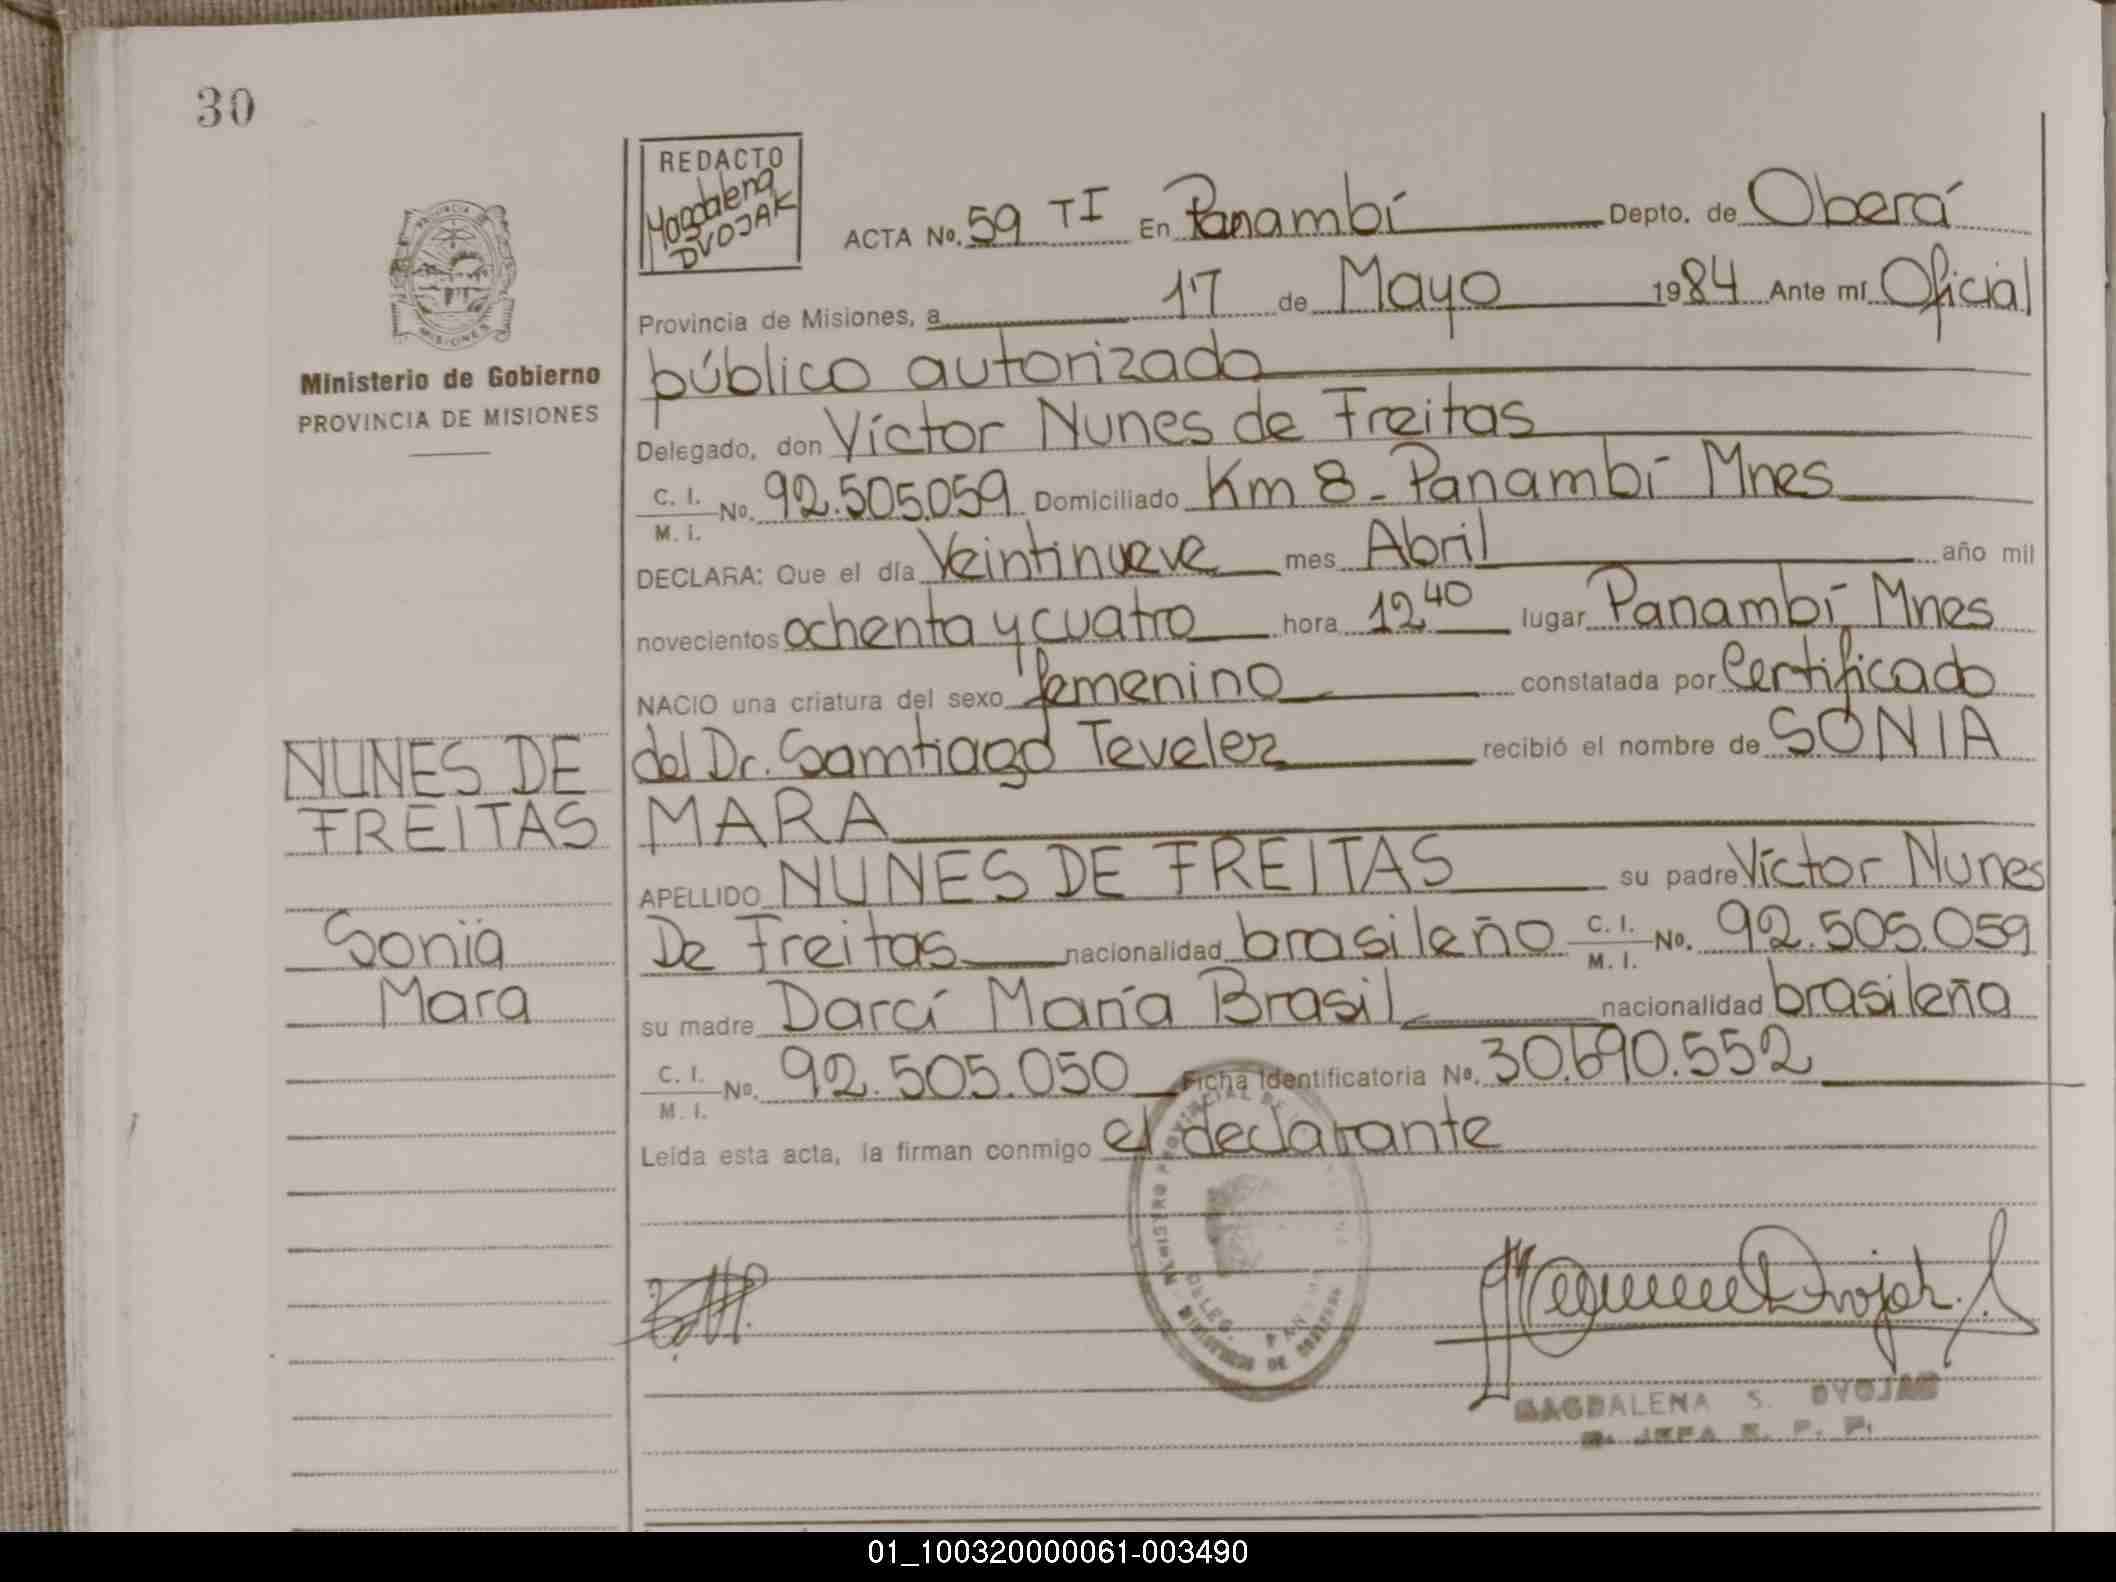 30
REDACTO
Magdalena
DVOJAK
PROVINCIA DE
MISIONES
Ministerio de Gobierno
PROVINCIA DE MISIONES
ACTA No. 59 TI En Panambí Depto. de Oberá
Provincia de Misiones, a 17 de Mayo 1984 Ante mí Oficial
público autorizado
Delegado, don Víctor Nunes de Freitas
C. I. / M. I. No. 92.505.059 Domiciliado Km 8 - Panambí Mnes
DECLARA: Que el día Veintinueve mes Abril año mil
novecientos ochenta y cuatro hora 12 40 lugar Panambí Mnes
NACIO una criatura del sexo femenino constatada por Certificado
del Dr. Samtiago Teveler recibió el nombre de SONIA
MARA
NUNES DE
FREITAS
Sonia
Mara
APELLIDO NUNES DE FREITAS su padre Víctor Nunes
De Freitas nacionalidad brasileño C. I. / M. I. No. 92.505.059
su madre Darcí María Brasil nacionalidad brasileña
C. I. / M. I. No. 92.505.050 Ficha Identificatoria No. 30.690.552
Leída esta acta, la firman conmigo el declarante
PROVINCIAL DE
DELEG.
DE
MAGDALENA S. DVOJAK
JEFA R. P. P.
01_100320000061-003490